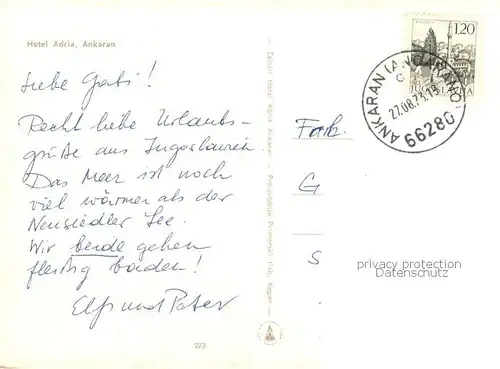 Hotel Adria, Ankaran
Liebe Gabi!
Recht liebe Urlaubs-
grüße aus Jugoslawien.
Das Meer ist noch
viel wärmer als der
Neusiedler See.
Wir beide gehen
fleißig baden!
und Peter
273
Založil Hotel Adria Ankaran — Proizvodnja Primorski tisk, Koper
1.20
JUGOSLAVIJA
ANKARAN (ANCARANO)
27.08.73
66280
Fach.
G
S
privacy protection
Datenschutz